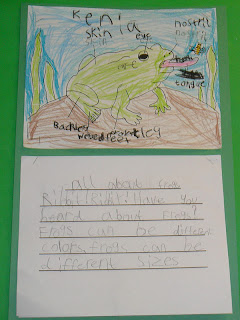 Keni
skin
eye
nostril
tongue
Backwed
webedfeet
all about frogs
Ribbit! Ribbit! Have you
heard about frogs?
Frogs can be different
colors. frogs can be
different sizes